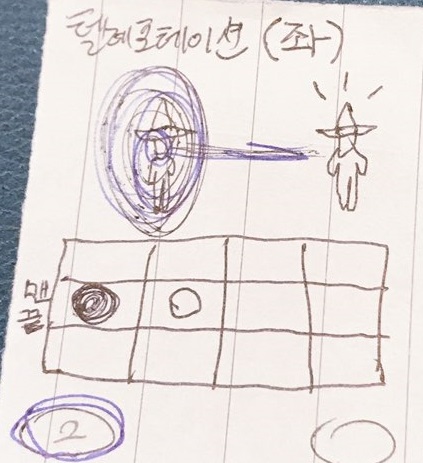 텔레포테이션 (좌)
맨
끝
2